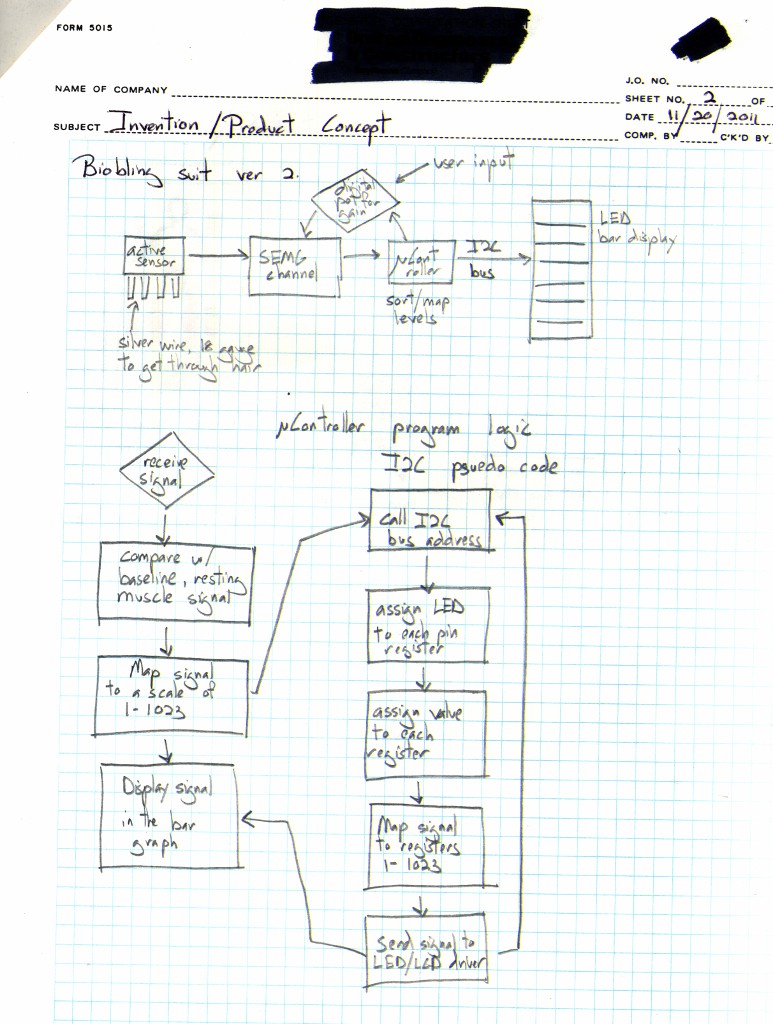 FORM 5015
J.O. NO.
NAME OF COMPANY
SHEET NO. 2 OF
SUBJECT Invention/Product Concept
DATE 11/20/2011
COMP. BY C'K'D BY
Biobling suit ver 2.
user input
digital
pot for
gain
active
sensor
SEMG
channel
μCont
roller
I2C
bus
LED
bar display
sort/map
levels
silver wire, 18 gauge
to get through hair
μController program logic
I2C psuedo code
receive
signal
Compare w/
baseline, resting
muscle signal
Map signal
to a scale of
1-1023
Display signal
in the bar
graph
call I2C
bus address
assign LED
to each pin
register
assign value
to each
register
Map signal
to registers
1-1023
Send signal to
LED/LCD driver